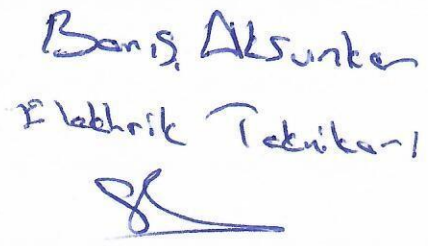 Barış Aksunkar
Elektrik Teknikeri